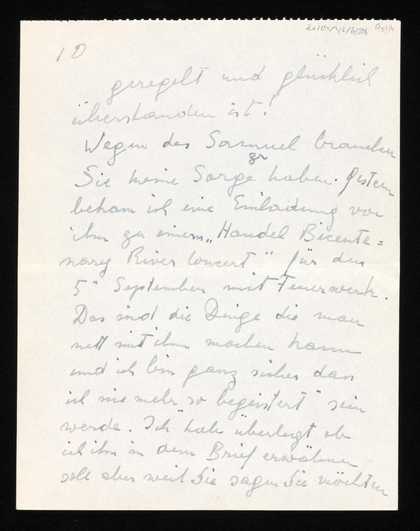 10
geregelt und glücklich
überstanden ist!
Wegen des Samuel brauchen
Sie keine Sorge zu haben. Gestern
bekam ich eine Einladung von
ihm zu einem „Handel Bicente=
nary River Concert" für den
5. September mit Feuerwerk.
Das sind die Dinge die man
nett mit ihm machen kann
und ich bin ganz sicher dass
ich nie mehr so „begeistert" sein
werde. Ich habe überlegt ob
ich ihn in dem Brief erwähnen
soll aber weil Sie sagen Sie möchten